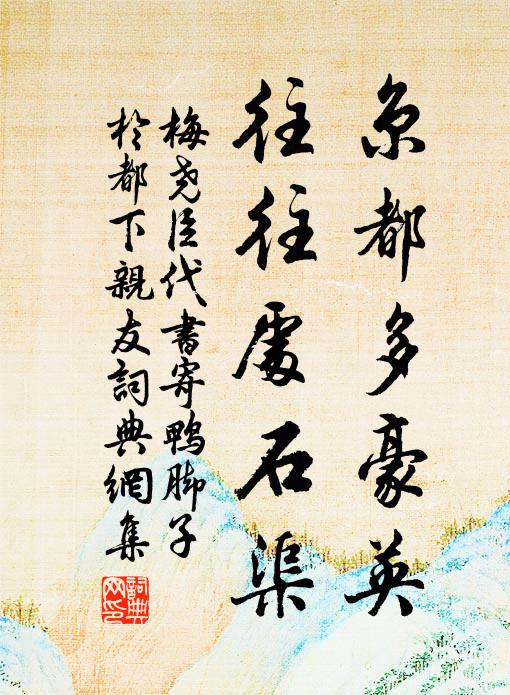 京都多豪英
往往處石渠
梅堯臣代書寄鴨脚子
於都下親友詞典網集
詞典網印